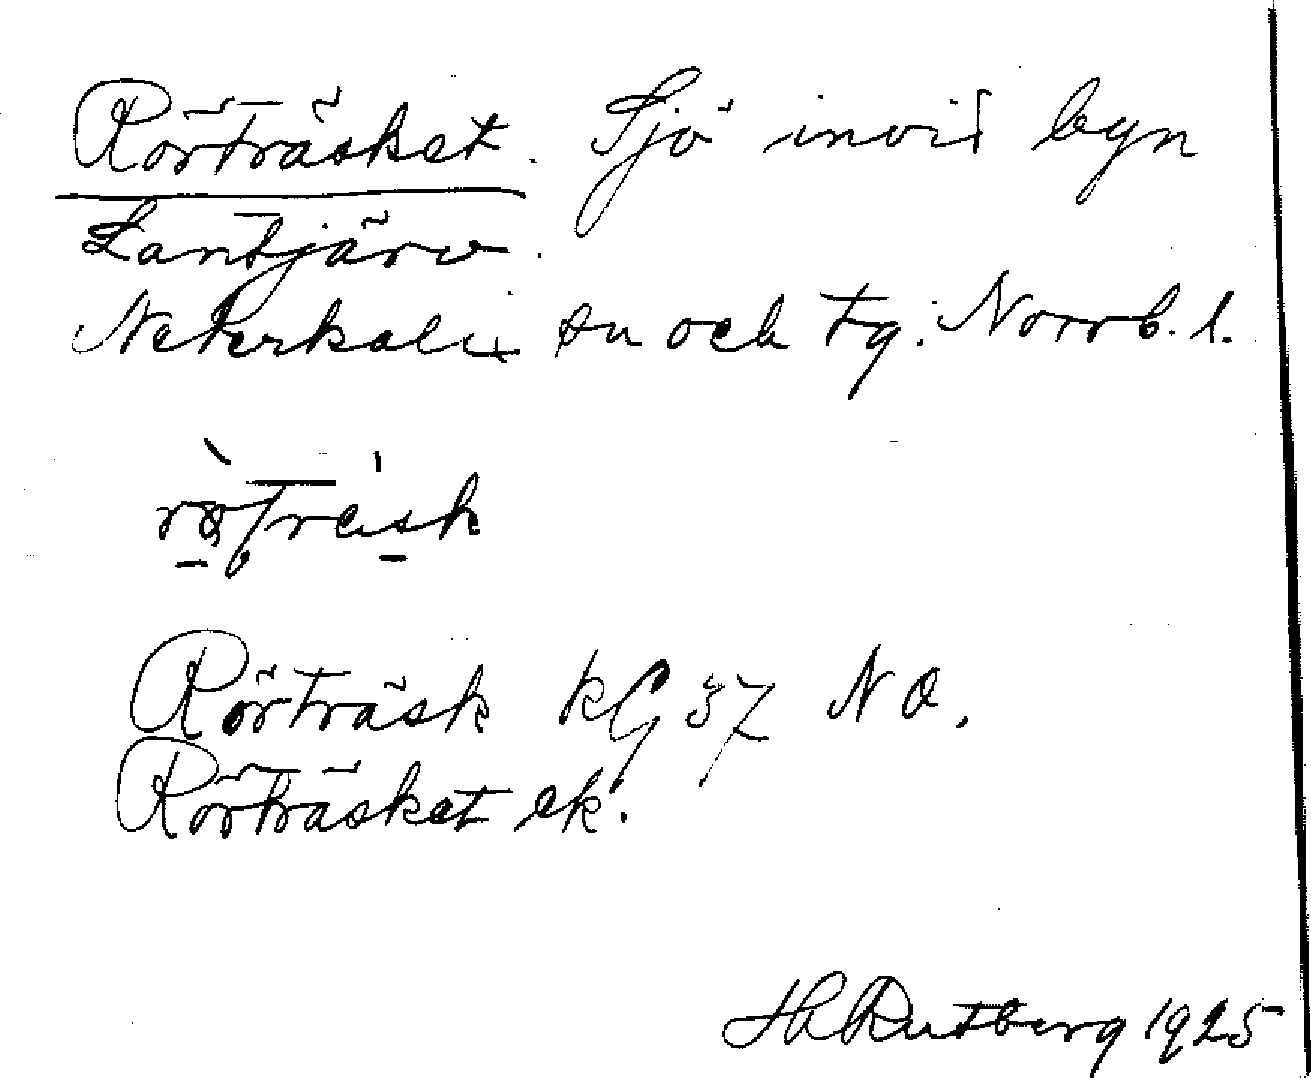 Rörträsket. Sjö invid byn
Lantjärv.
Nederkalix sn och tg. Norrb. l.
Rörträsk KG 37 NO.
Rörträsket ek.
H Rutberg 1925